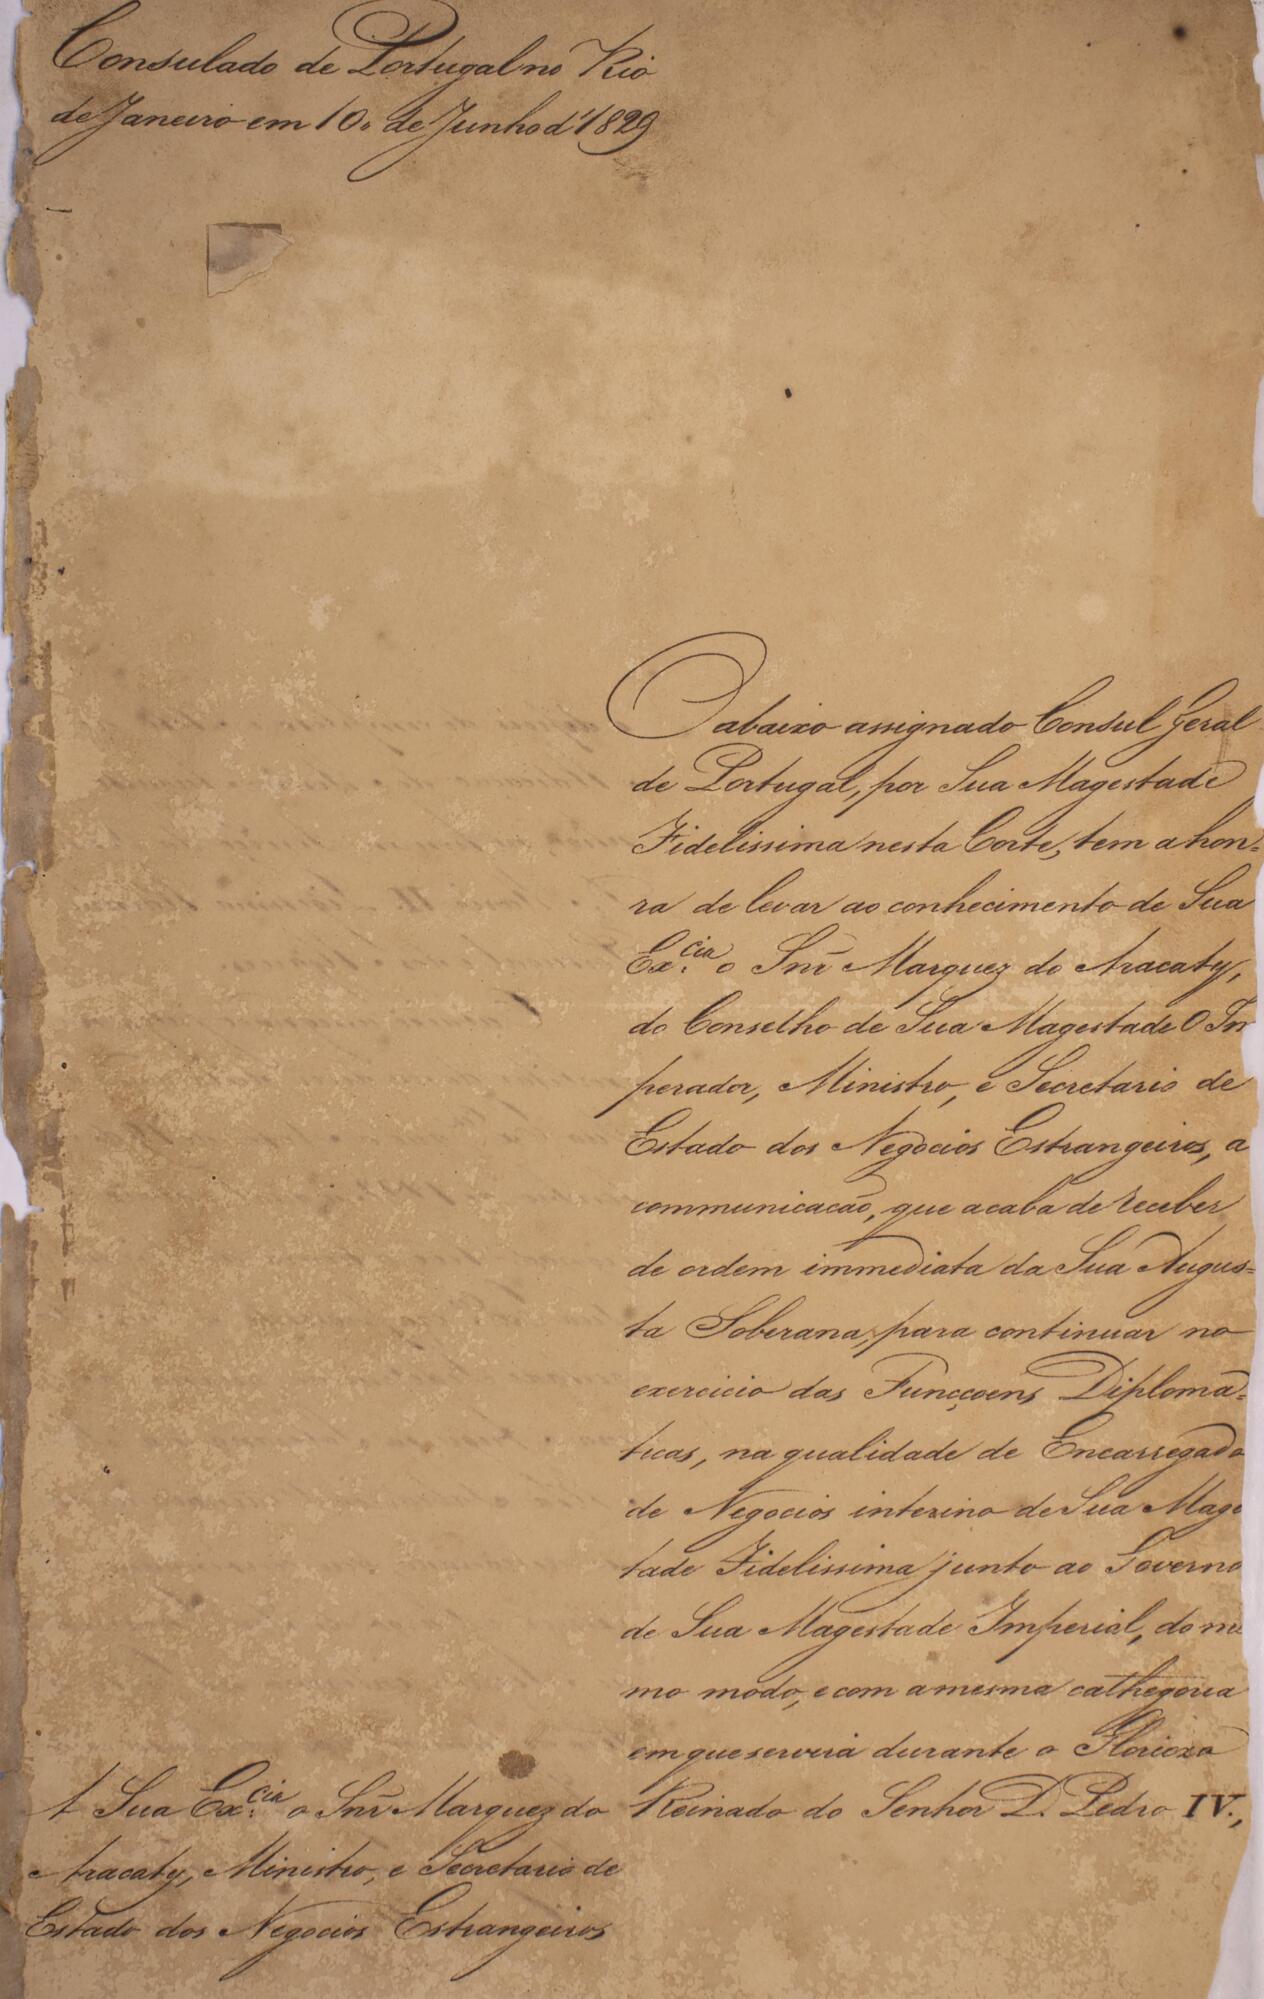 Consulado de Portugal no Rio
de Janeiro em 10 de Junho d'1829
O abaixo assignado Consul Geral
de Portugal, por Sua Magestade
Fidelissima nesta Corte, tem a hon-
ra de levar ao conhecimento de Sua
Ex.cia o Snr Marquez do Aracaty,
do Conselho de Sua Magestade O Im
perador, Ministro, e Secretario de
Estado dos Negocios Estrangeiros, a
communicacão, que acaba de receber
de ordem immediata da Sua Augus=
ta Soberana, para continuar no
exercicio das Funcçoens Diploma=
ticas, na qualidade de Encarregado
de Negocios interino de Sua Mage
tade Fidelissima junto ao Governo
de Sua Magestade Imperial, do me
mo modo, e com a mesma cathegoria
em que servira durante o Gloriozo
Reinado do Senhor D. Pedro IV.,
A Sua Ex.cia o Snr Marquez do
Aracaty, Ministro, e Secretario de
Estado dos Negocios Estrangeiros